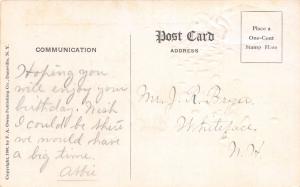 Post Card
Place a
One-Cent
Stamp Here
COMMUNICATION
ADDRESS
Hoping you
will enjoy your
birthday. Wish
I could be there
we would have
a big time.
Abbie
Mr. J. R. Bryer
Whiteface,
N. H
Copyright, 1908, by F. A. Owen Publishing Co., Dansville, N. Y.